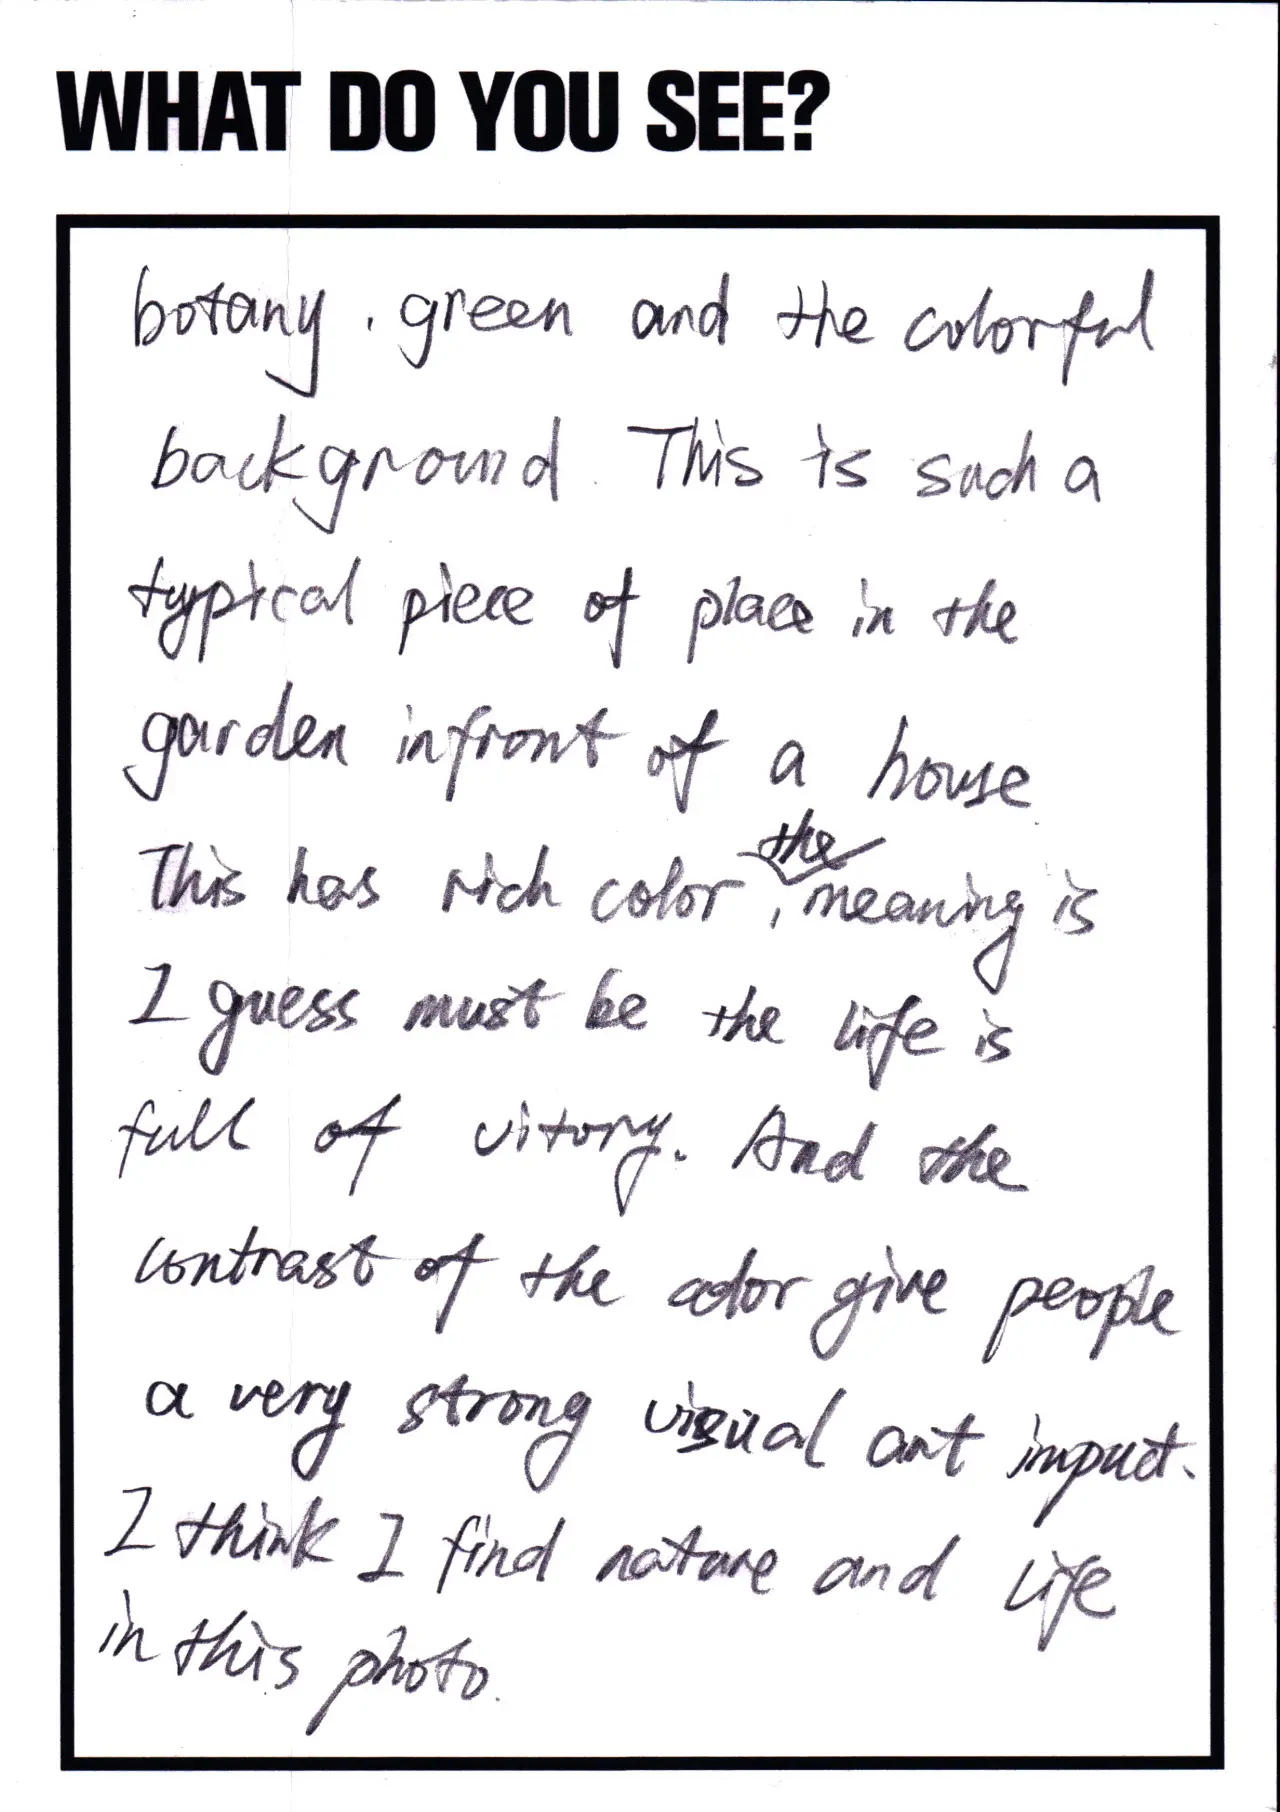 WHAT DO YOU SEE?
botany, green and the colorful
background. This is such a
typical piece of place in the
garden infront of a house
This has rich color, the meaning is
I guess must be the life is
full of vitory. And the
contrast of the color give people
a very strong visual art impact.
I think I find nature and life
in this photo.